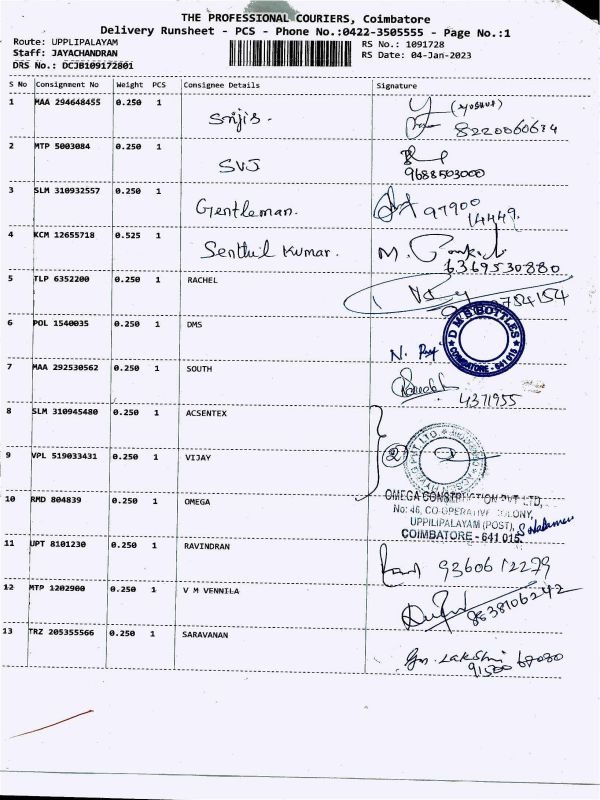 THE PROFESSIONAL COURIERS, Coimbatore
Delivery Runsheet - PCS - Phone No.:0422-3505555 - Page No.:1
Route: UPPLIPALAYAM
Staff: JAYACHANDRAN
DRS No.: DCJB109172801
RS No.: 1091728
RS Date: 04-Jan-2023
S No Consignment No Weight PCS Consignee Details Signature
1 MAA 294648455 0.250 1
8220060674
2 MTP 5003084 0.250 1 SVJ
9688503000
3 SLM 310932557 0.250 1 Gentleman. 97900
14449.
4 KCM 12655718 0.525 1 Senthil Kumar. M.
6369530880
5 TLP 6352200 0.250 1 RACHEL
6 POL 1540035 0.250 1 DMS
DMS BOTTLES
COIMBATORE - 641 015
7 MAA 292530562 0.250 1 SOUTH
4371955
8 SLM 310945480 0.250 1 ACSENTEX
9 VPL 519033431 0.250 1 VIJAY
10 RMD 804839 0.250 1 OMEGA
OMEGA CONSTRUCTION PVT LTD,
No: 46, CO-OPERATIVE COLONY,
UPPILIPALAYAM (POST),
COIMBATORE - 641 015.
11 UPT 8101230 0.250 1 RAVINDRAN
9360612279
12 MTP 1202900 0.250 1 V M VENNILA
8638106242
13 TRZ 205355566 0.250 1 SARAVANAN
Lakshmi
91500 67080